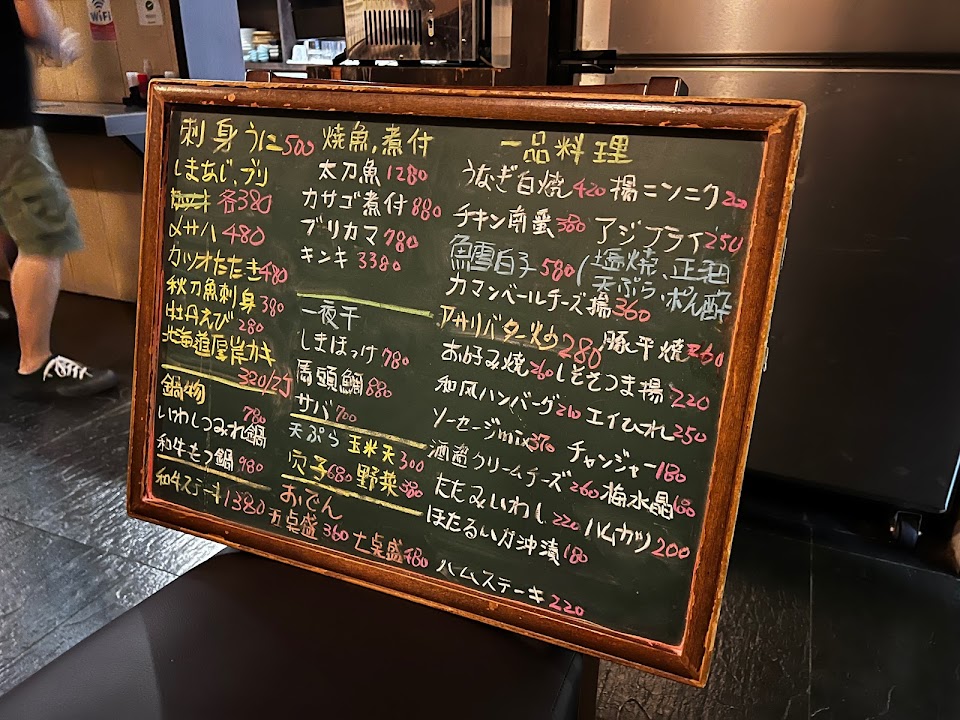 WiFi
刺身 うに500
しまあじ、ブリ
各380
〆サバ 480
カツオたたき480
秋刀魚刺身380
牡丹えび280
北海道厚岸カキ
320/2ケ
鍋物
いわしつみれ鍋780
和牛もつ鍋980
和牛ステーキ1380
焼魚,煮付
太刀魚1280
カサゴ煮付880
ブリカマ780
キンキ3380
一夜干
しまほっけ780
馬頭鯛880
サバ700
天ぷら 玉米天300
穴子680 野菜380
おでん
五点盛360 七点盛480
一品料理
うなぎ白焼420 揚ニンニク220
チキン南蛮380 アジフライ250
鱈白子580(塩焼、正油
天ぷら、ポン酢
カマンベールチーズ揚360
アサリバター炒め280 豚平焼
お好み焼260 しそさつま揚220
和風ハンバーグ210 エイひれ250
ソーセージmix370 チャンジャー180
酒盗クリームチーズ260 梅水晶180
たたみいわし220 ハムカツ200
ほたるいか沖漬180
ハムステーキ220